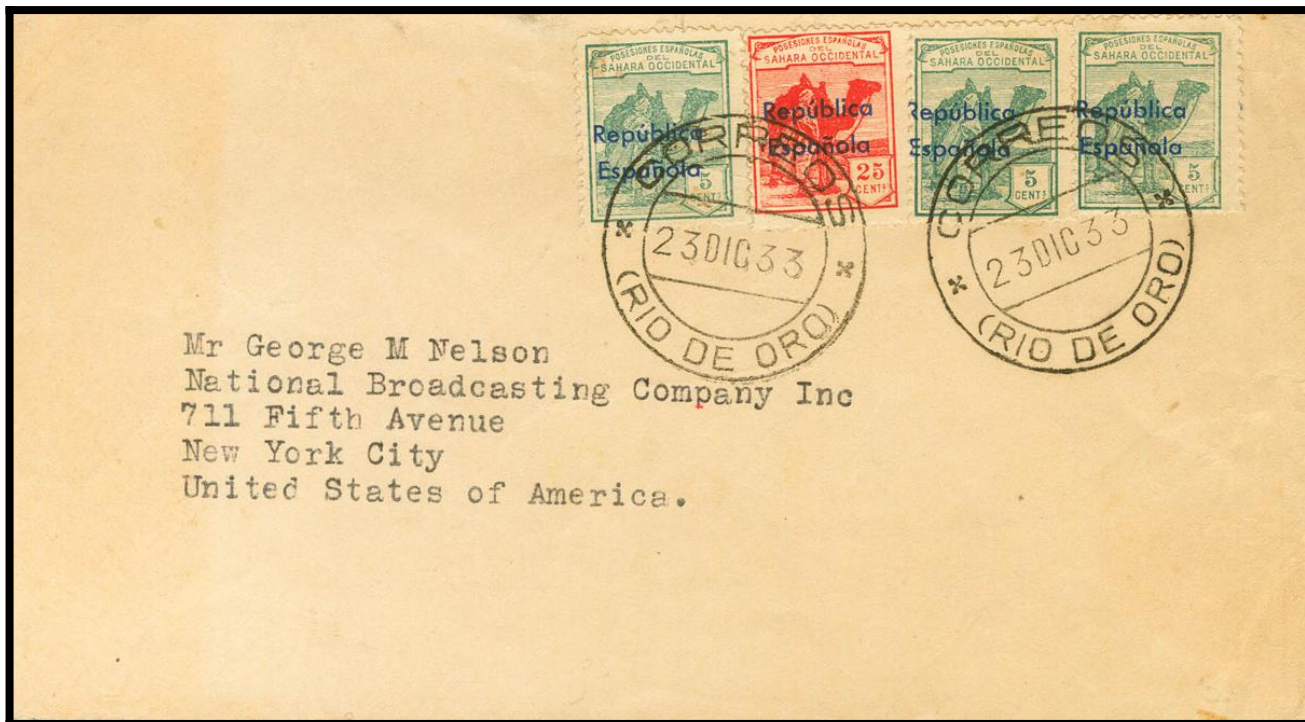 POSESIONES ESPAÑOLAS
DEL
SAHARA OCCIDENTAL
República
Española
5
CENTS
POSESIONES ESPAÑOLAS
DEL
SAHARA OCCIDENTAL
República
Española
25
CENTS
POSESIONES ESPAÑOLAS
DEL
SAHARA OCCIDENTAL
República
Española
5
CENTS
POSESIONES ESPAÑOLAS
DEL
SAHARA OCCIDENTAL
República
Española
5
CENTS
CORREOS
23 DIC 33
(RIO DE ORO)
CORREOS
23 DIC 33
(RIO DE ORO)
Mr George M Nelson
National Broadcasting Company Inc
711 Fifth Avenue
New York City
United States of America.